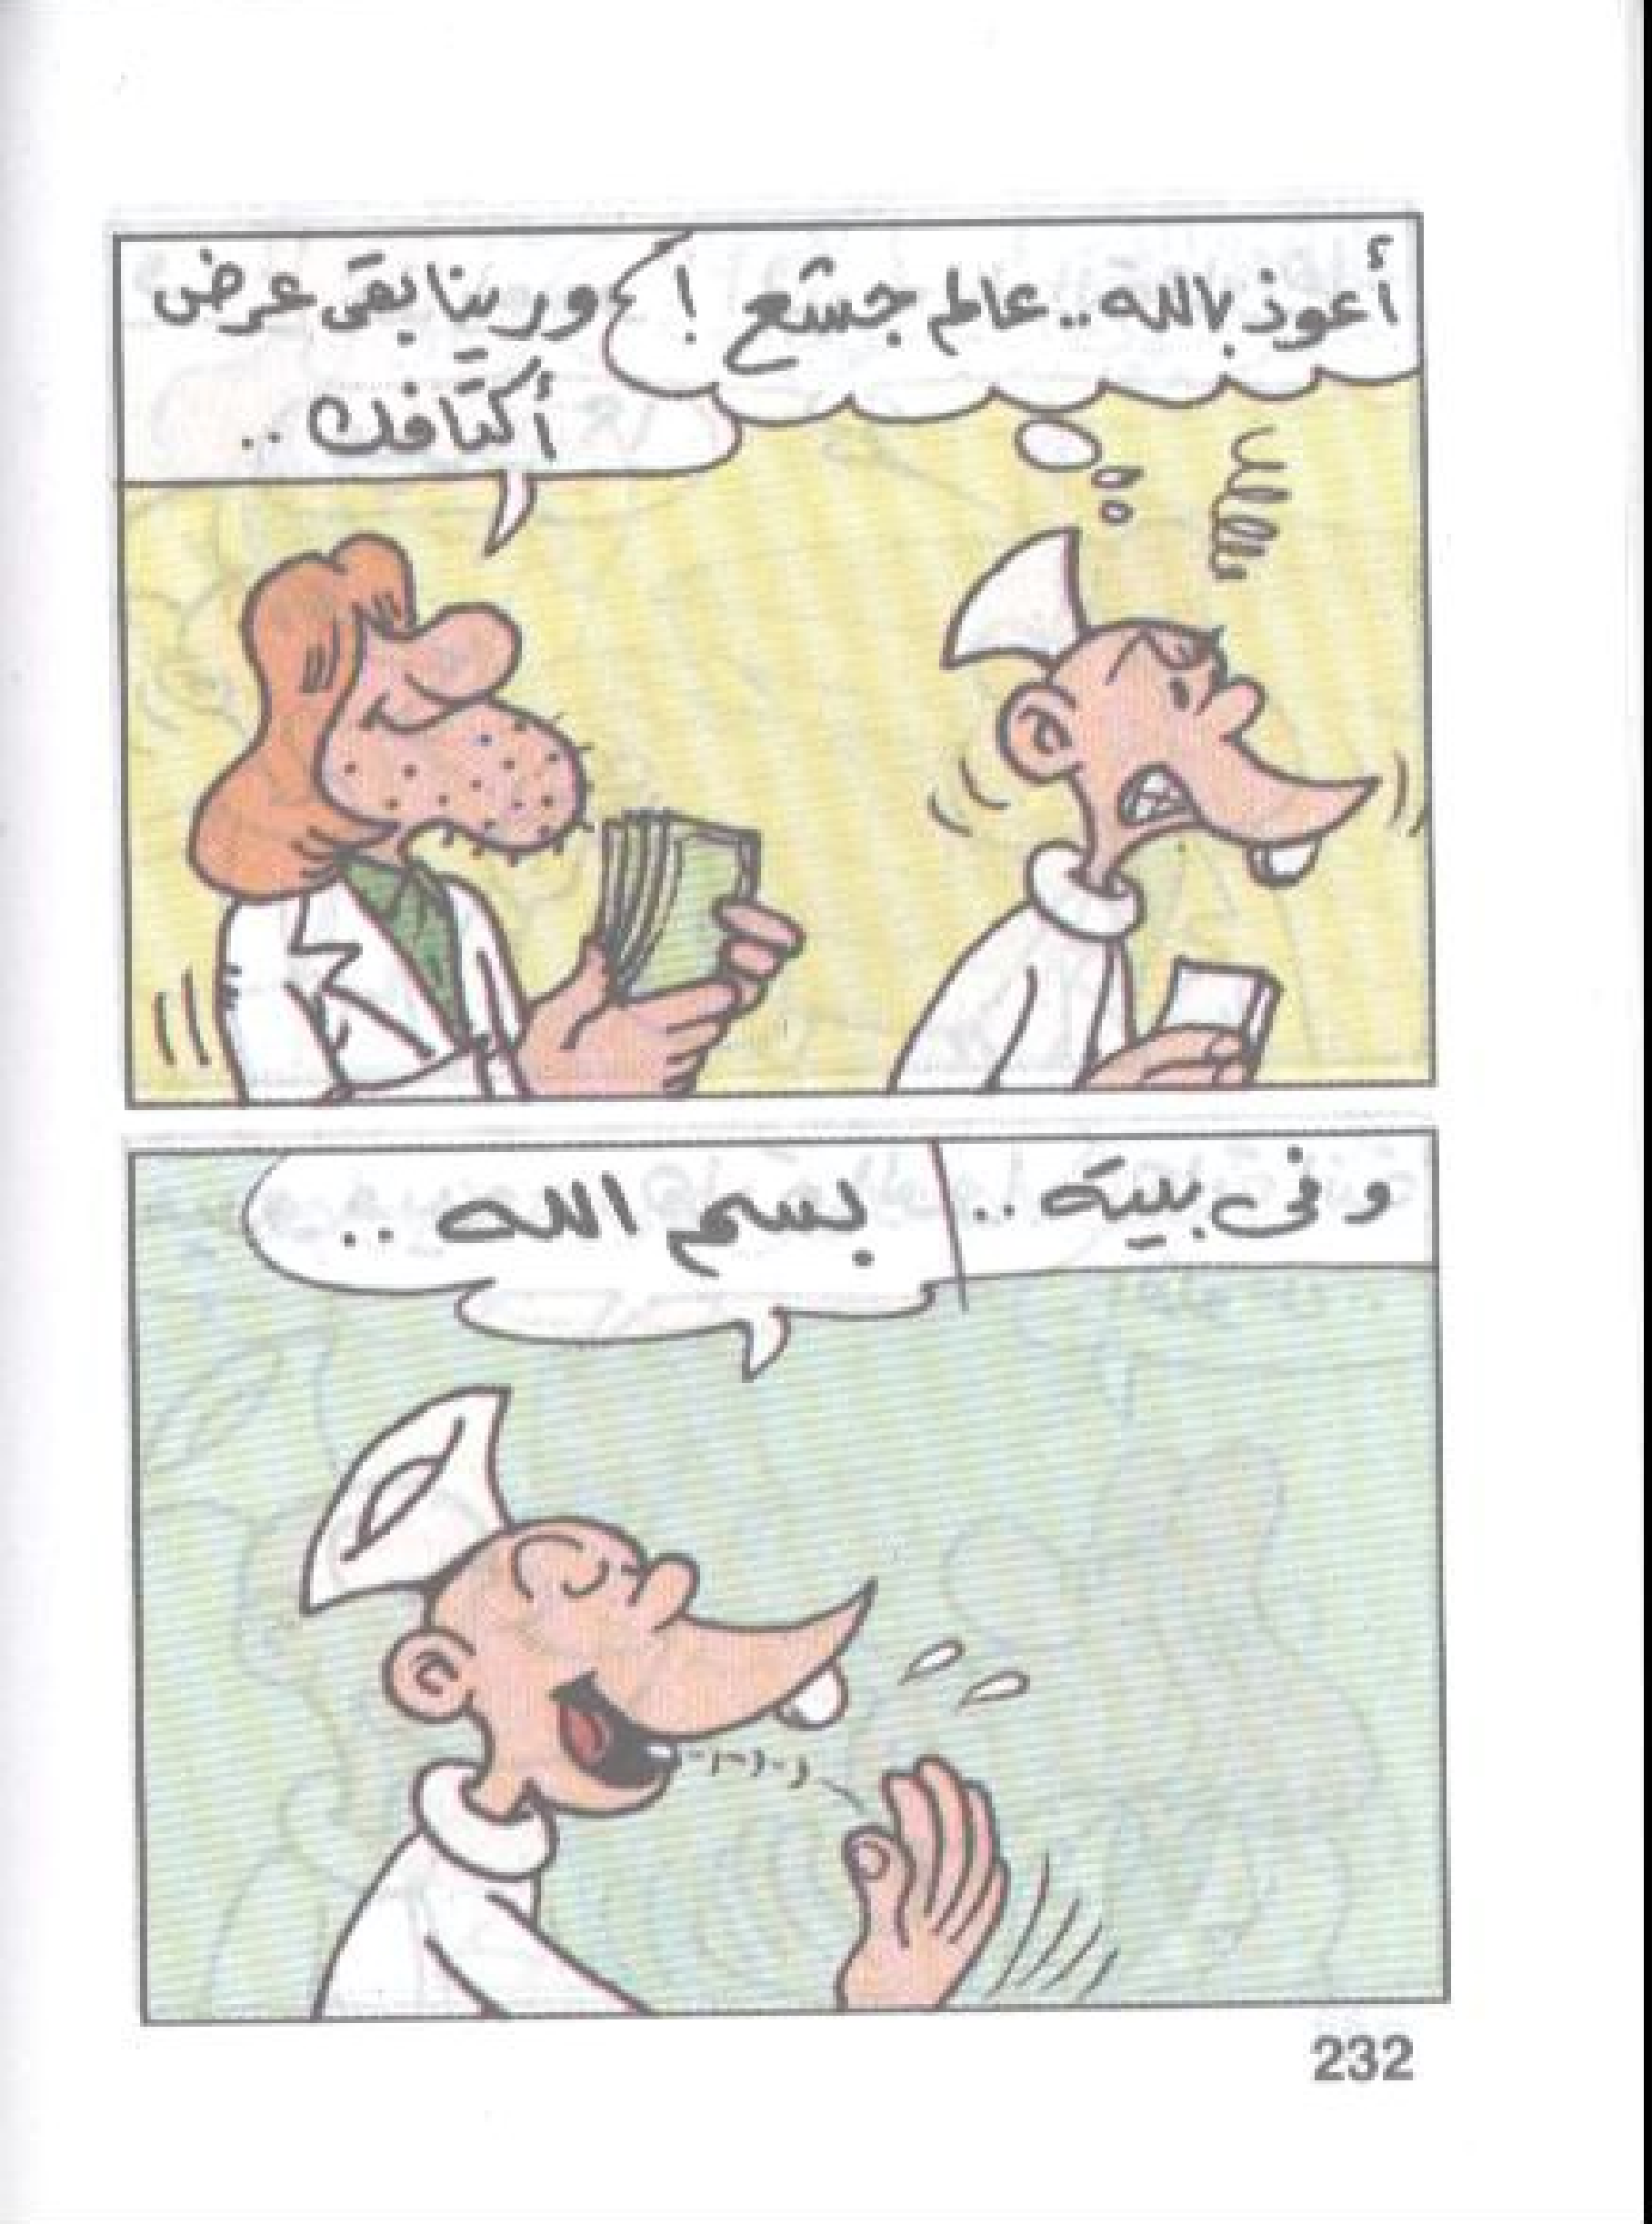 أعوذ بالله.. عالم جشع !
ورينا بقى عرض
أكتافك ..
وفى بيته ..
بسم الله ..
232